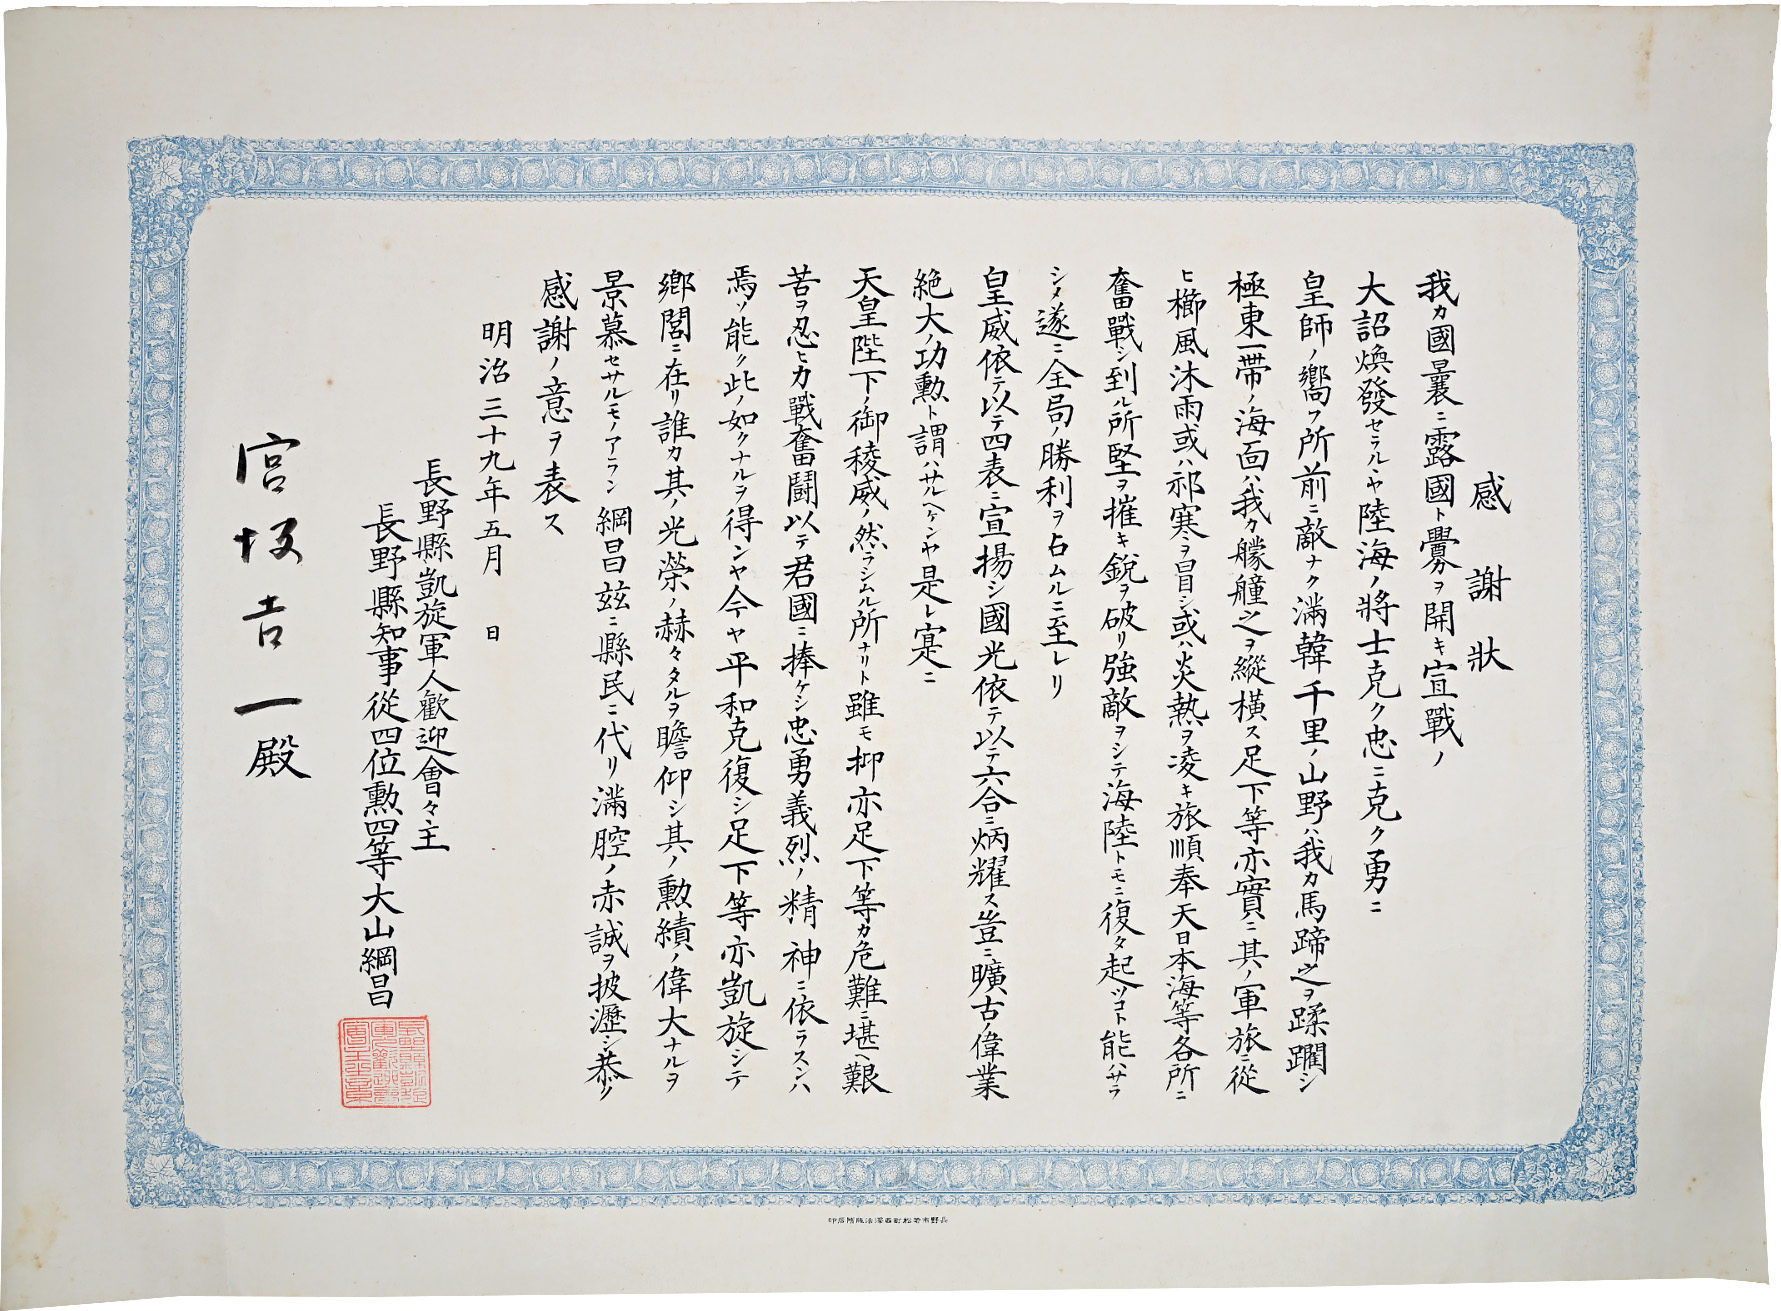 感謝狀
我カ國曩ニ露國ト釁ヲ開キ宣戰ノ
大詔煥發セラルヽヤ陸海ノ將士克ク忠ニ克ク勇ニ
皇師ノ嚮フ所前ニ敵ナク滿韓千里ノ山野ハ我カ馬蹄之ヲ蹂躙シ
極東一帶ノ海面ハ我カ艨艟之ヲ縱橫ス足下等亦實ニ其ノ軍旅ニ從
ヒ櫛風沐雨或ハ祁寒ヲ冒シ或ハ炎熱ヲ凌キ旅順奉天日本海等各所ニ
奮戰シ到ル所堅ヲ摧キ銳ヲ破リ強敵ヲシテ海陸トモニ復タ起ツコト能ハサラ
シメ遂ニ全局ノ勝利ヲ占ムルニ至レリ
皇威依テ以テ四表ニ宣揚シ國光依テ以テ六合ニ炳耀ス豈ニ曠古ノ偉業
絶大ノ功勳ト謂ハサルヘケンヤ是レ寔ニ
天皇陛下ノ御稜威ノ然ラシムル所ナリト雖モ抑亦足下等カ危難ニ堪ヘ艱
苦ヲ忍ヒ力戰奮鬪以テ君國ニ捧ケシ忠勇義烈ノ精神ニ依ラスンハ
焉ソ能ク此ノ如クナルヲ得ンヤ今ヤ平和克復シ足下等亦凱旋シテ
鄕閭ニ在リ誰カ其ノ光榮ノ赫々タルヲ瞻仰シ其ノ勳績ノ偉大ナルヲ
景慕セサルモノアラン綱昌玆ニ縣民ニ代リ滿腔ノ赤誠ヲ披瀝シ恭ク
感謝ノ意ヲ表ス
明治三十九年五月 日
長野縣凱旋軍人歡迎會々主
長野縣知事從四位勳四等大山綱昌
宮坂吉一殿